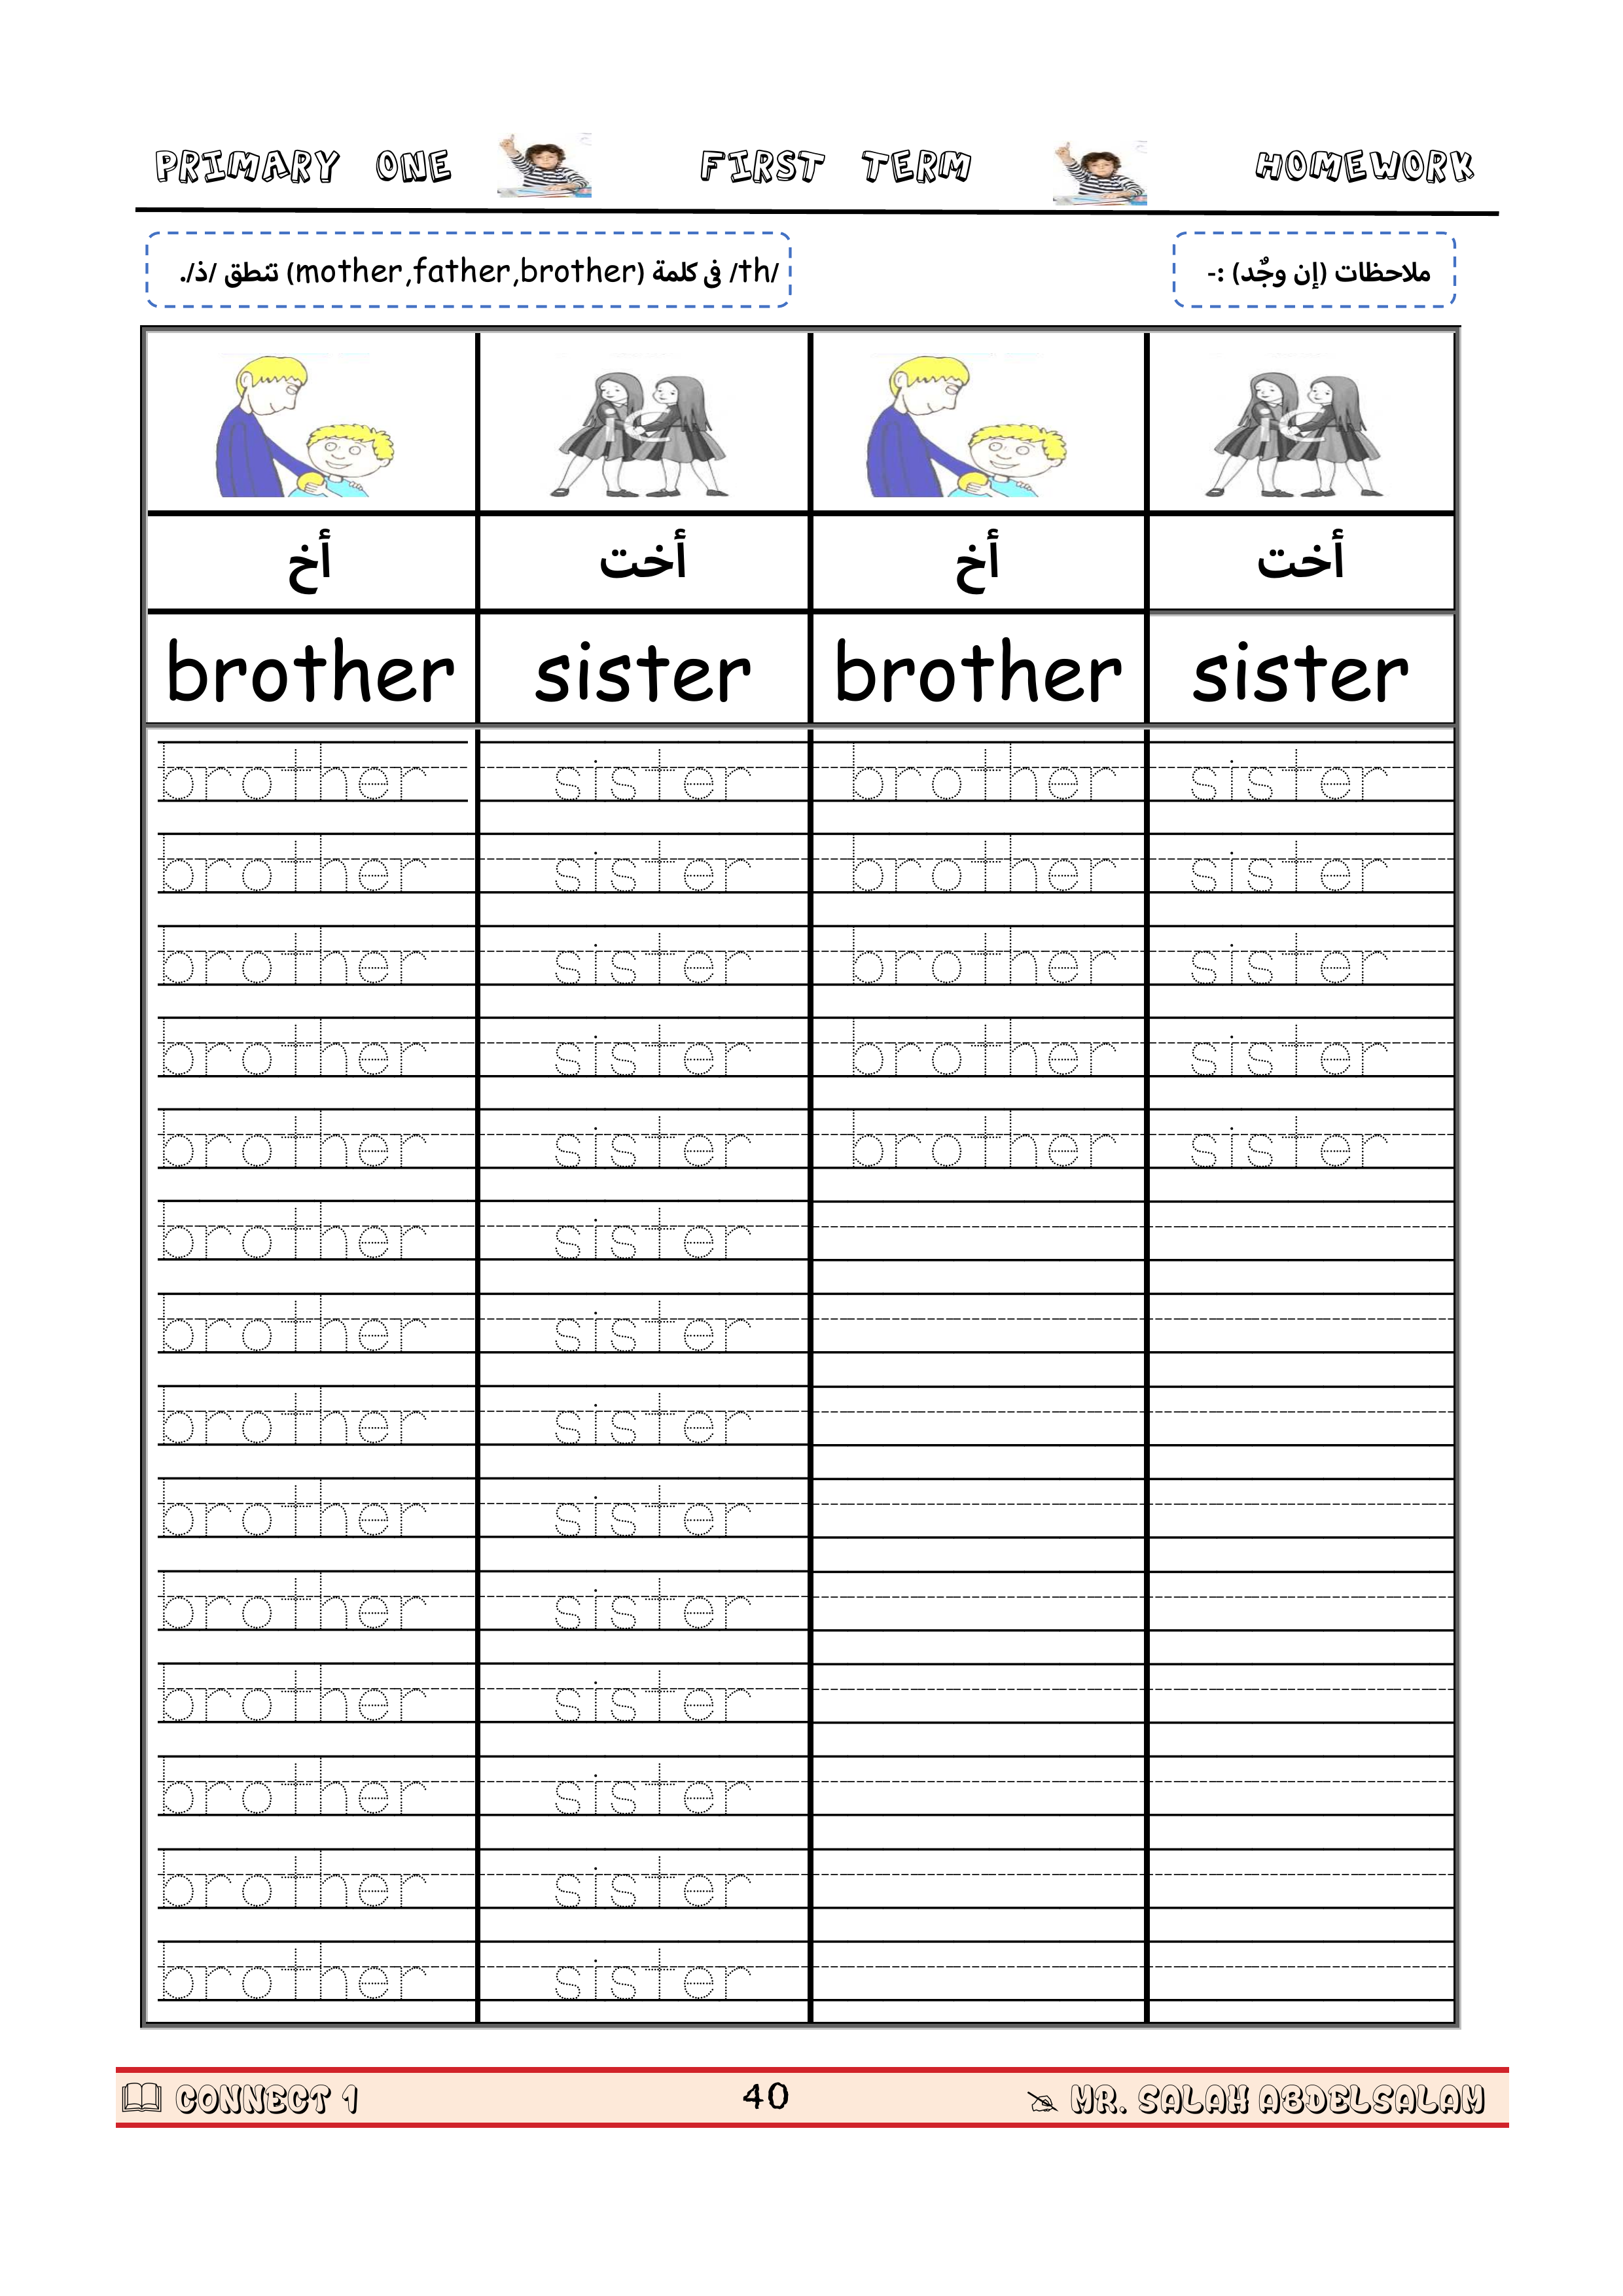 PRIMARY ONE FIRST TERM HOMEWORK
ملاحظات (إن وجٌد) :-
/th/ فى كلمة (mother,father,brother) تنطق /ذ/.
أخ أخت أخ أخت
brother sister brother sister
brother sister brother sister
brother sister brother sister
brother sister brother sister
brother sister brother sister
brother sister brother sister
brother sister
brother sister
brother sister
brother sister
brother sister
brother sister
brother sister
brother sister
brother sister
CONNECT 1 40 MR. SALAH ABDELSALAM